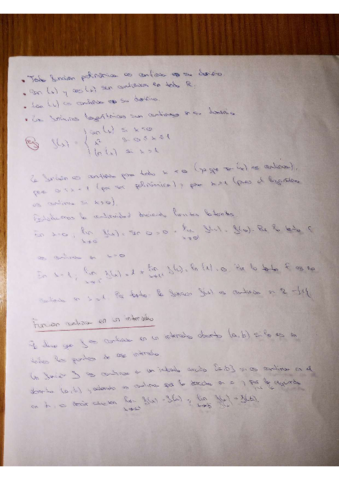 • Toda función polinómica es continua en su dominio
• sen(x) y cos(x) son continuas en todo R.
• tan(x) es continua en su dominio.
• Las funciones logarítmicas son continuas en su dominio
f(x) = { sen(x) si x<0
x² si 0≤x≤1
ln(x) si x>1
La función es continua para todo x<0 (ya que sen(x) es continua),
para 0<x<1 (por ser polinómica) y para x>1 (pues el logaritmo
es continuo si x>0).
Estudiamos la continuidad en los puntos
En x=0, lim f(x) = sen 0 = 0 = lim f(x) = f(0). Por lo tanto f
es continua en x=0
En x=1, lim f(x) = 1 ≠ lim f(x) = ln(1) = 0. Por lo tanto f no es
continua en x=1. Por tanto, la función f(x) es continua en R-{1}
Función continua en un intervalo
Se dice que f es continua en un intervalo abierto (a,b) si lo es en
todos los puntos de ese intervalo
La función f es continua en un intervalo cerrado [a,b] si es continua en el
abierto (a,b), y además es continua por la derecha en a y por la izquierda
en b, es decir lim f(x) = f(a) y lim f(x) = f(b).